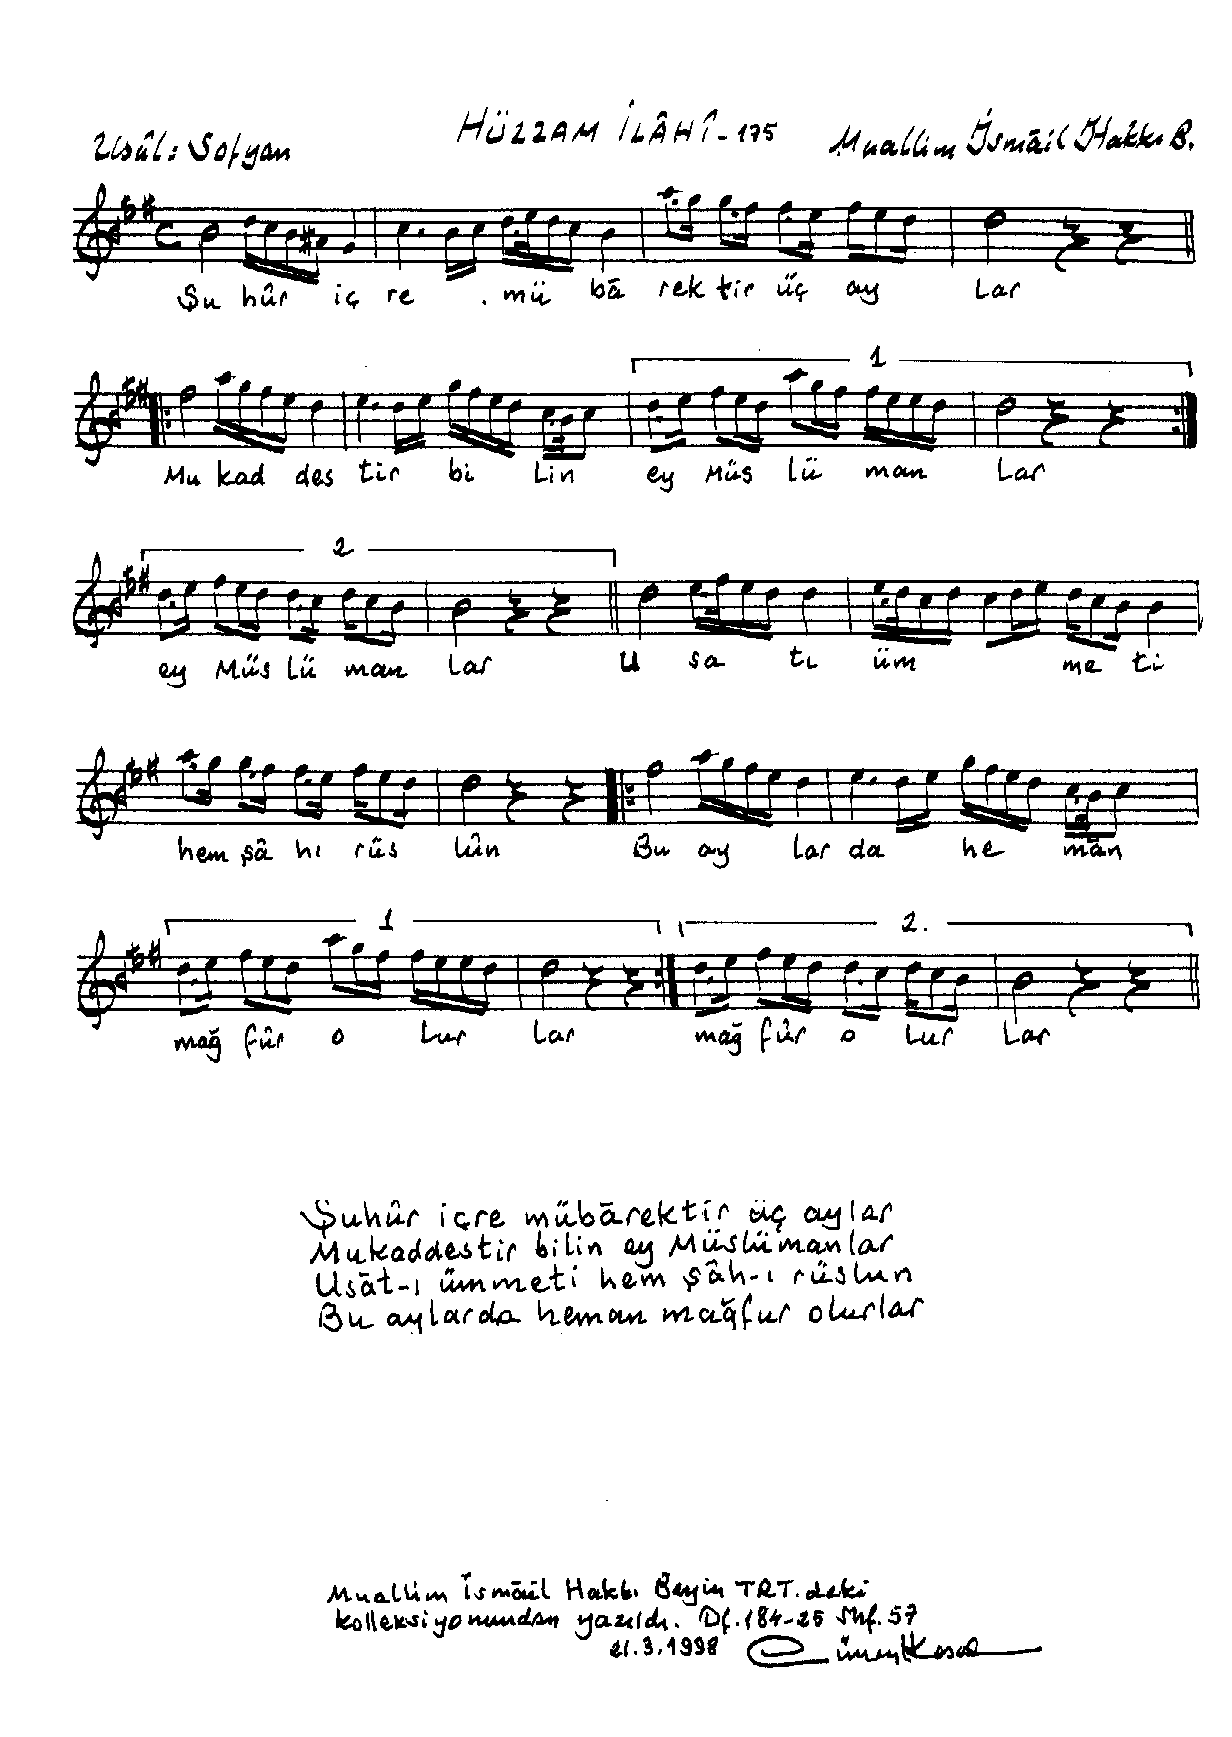 HÜZZAM İLÂHÎ - 175
Usûl: Sofyan
Muallim İsmâil Hakkı B.
Şu hûr iç re . mü bā rek tir üç ay lar
1
Mu kad des tir bi lin ey Müs lü man lar
2
ey Müs lü man lar U sa tı üm me ti
hem şâ hı rüs lûn Bu ay lar da he mān
1 2.
mağ fûr o lur lar mağ fûr o lur lar
Şuhûr içre mübārektir üç aylar
Mukaddestir bilin ey Müslümanlar
Usāt-ı ümmeti hem şâh-ı rüslun
Bu aylarda heman mağfur olurlar
Muallim İsmāil Hakkı Beyin TRT. deki
kolleksiyonundan yazıldı. Df. 184-25 Shf. 57
21.3.1998